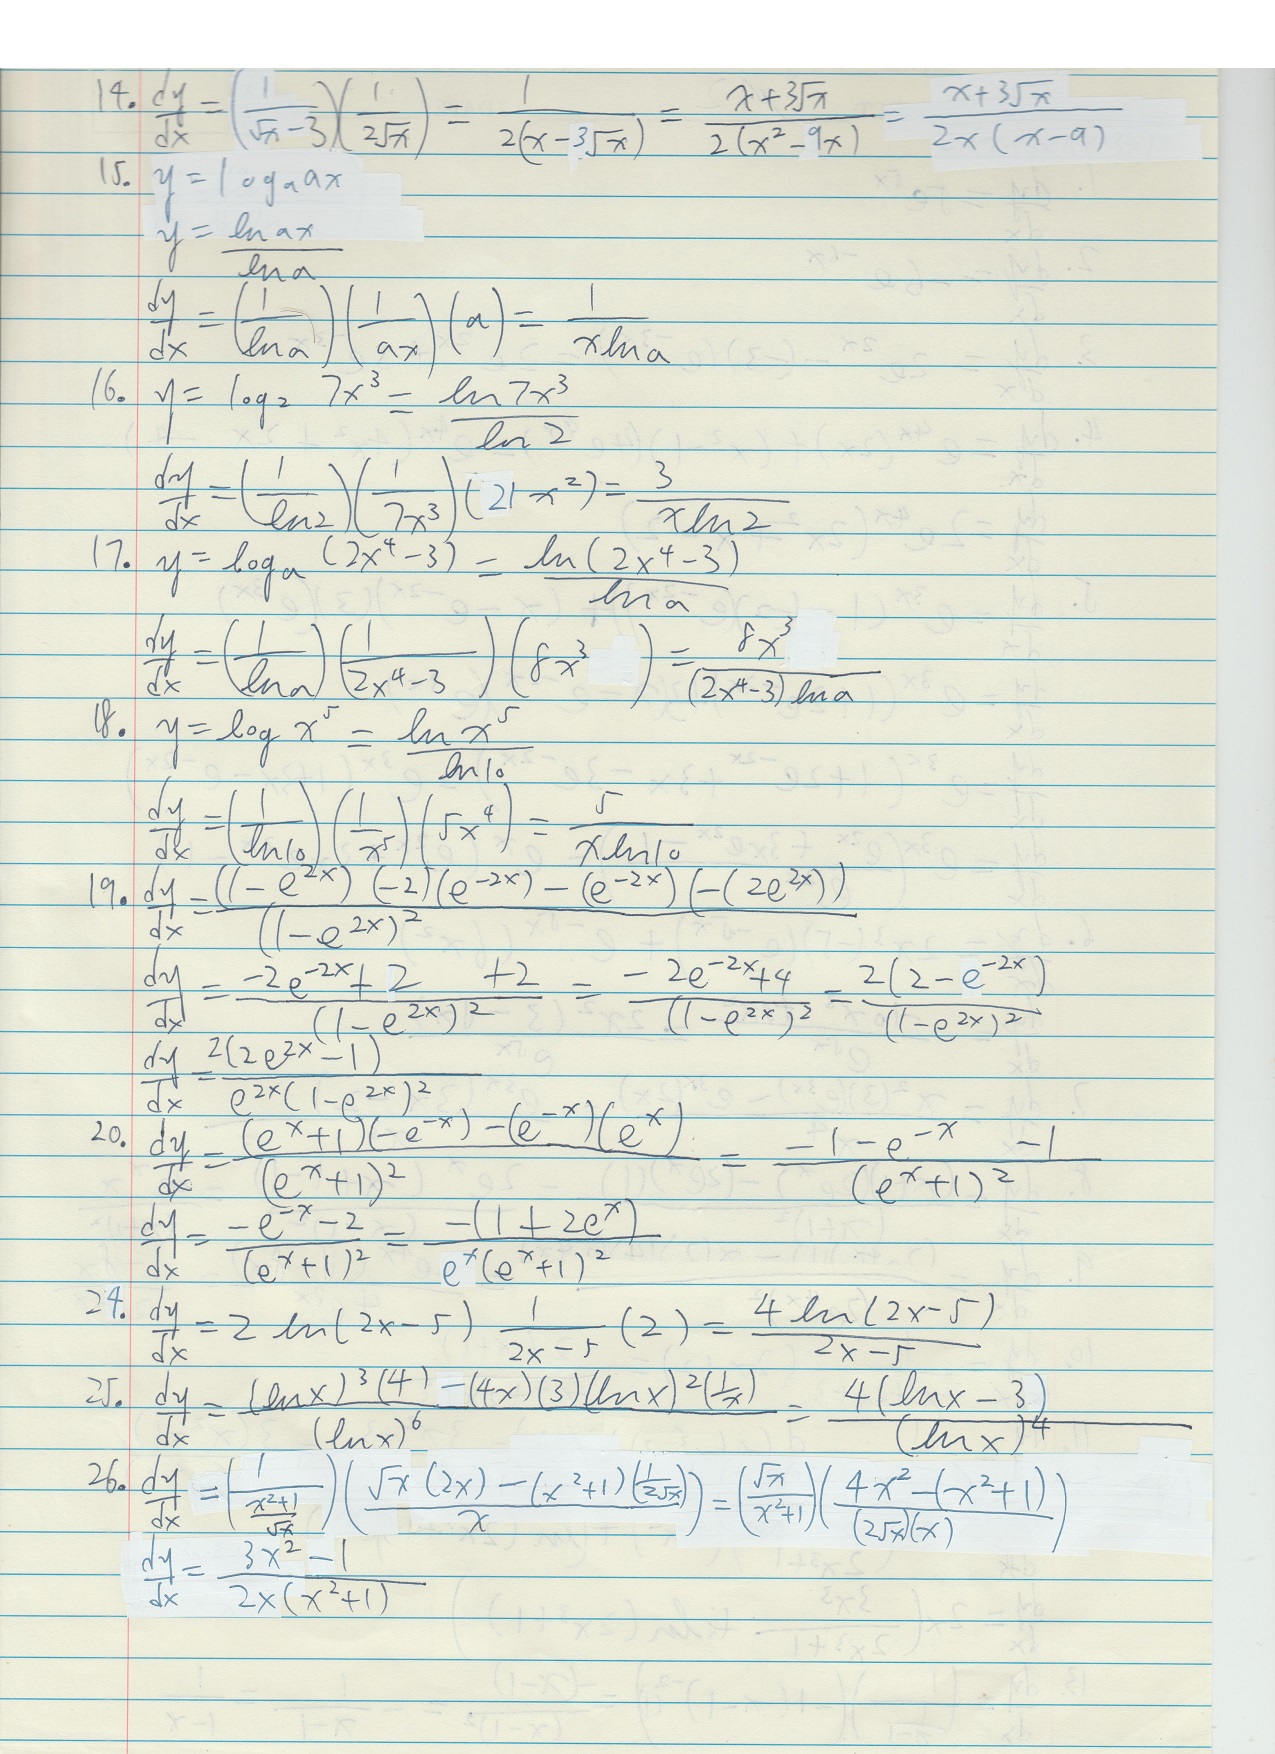 14. dy/dx = (1/(√x - 3))(1/(2√x)) = 1/(2(x - 3√x)) = (x + 3√x)/(2(x² - 9x)) = (x + 3√x)/(2x(x - 9))
15. y = log_a ax
y = ln ax/ln a
dy/dx = (1/ln a)(1/ax)(a) = 1/(x ln a)
16. y = log₂ 7x³ = ln 7x³/ln 2
dy/dx = (1/ln 2)(1/7x³)(21x²) = 3/(x ln 2)
17. y = log_a (2x⁴ - 3) = ln(2x⁴ - 3)/ln a
dy/dx = (1/ln a)(1/(2x⁴ - 3))(8x³) = 8x³/((2x⁴ - 3) ln a)
18. y = log x⁵ = ln x⁵/ln 10
dy/dx = (1/ln 10)(1/x⁵)(5x⁴) = 5/(x ln 10)
19. dy/dx = ((1 - e^(2x))(-2)(e^(-2x)) - (e^(-2x))(-(2e^(2x))))/(1 - e^(2x))²
dy/dx = (-2e^(-2x) + 2 + 2)/(1 - e^(2x))² = (-2e^(-2x) + 4)/(1 - e^(2x))² = 2(2 - e^(-2x))/(1 - e^(2x))²
dy/dx = 2(2e^(2x) - 1)/(e^(2x)(1 - e^(2x))²)
20. dy/dx = ((e^x + 1)(-e^(-x)) - (e^(-x))(e^x))/(e^x + 1)² = (-1 - e^(-x) - 1)/(e^x + 1)²
dy/dx = (-e^(-x) - 2)/(e^x + 1)² = -(1 + 2e^x)/(e^x(e^x + 1)²)
24. dy/dx = 2 ln(2x - 5) 1/(2x - 5) (2) = 4 ln(2x - 5)/(2x - 5)
25. dy/dx = ((ln x)³(4) - (4x)(3)(ln x)²(1/x))/(ln x)⁶ = 4(ln x - 3)/(ln x)⁴
26. dy/dx = (1/((x² + 1)/√x))((√x(2x) - (x² + 1)(1/(2√x)))/x) = (√x/(x² + 1))((4x² - (x² + 1))/((2√x)(x)))
dy/dx = (3x² - 1)/(2x(x² + 1))